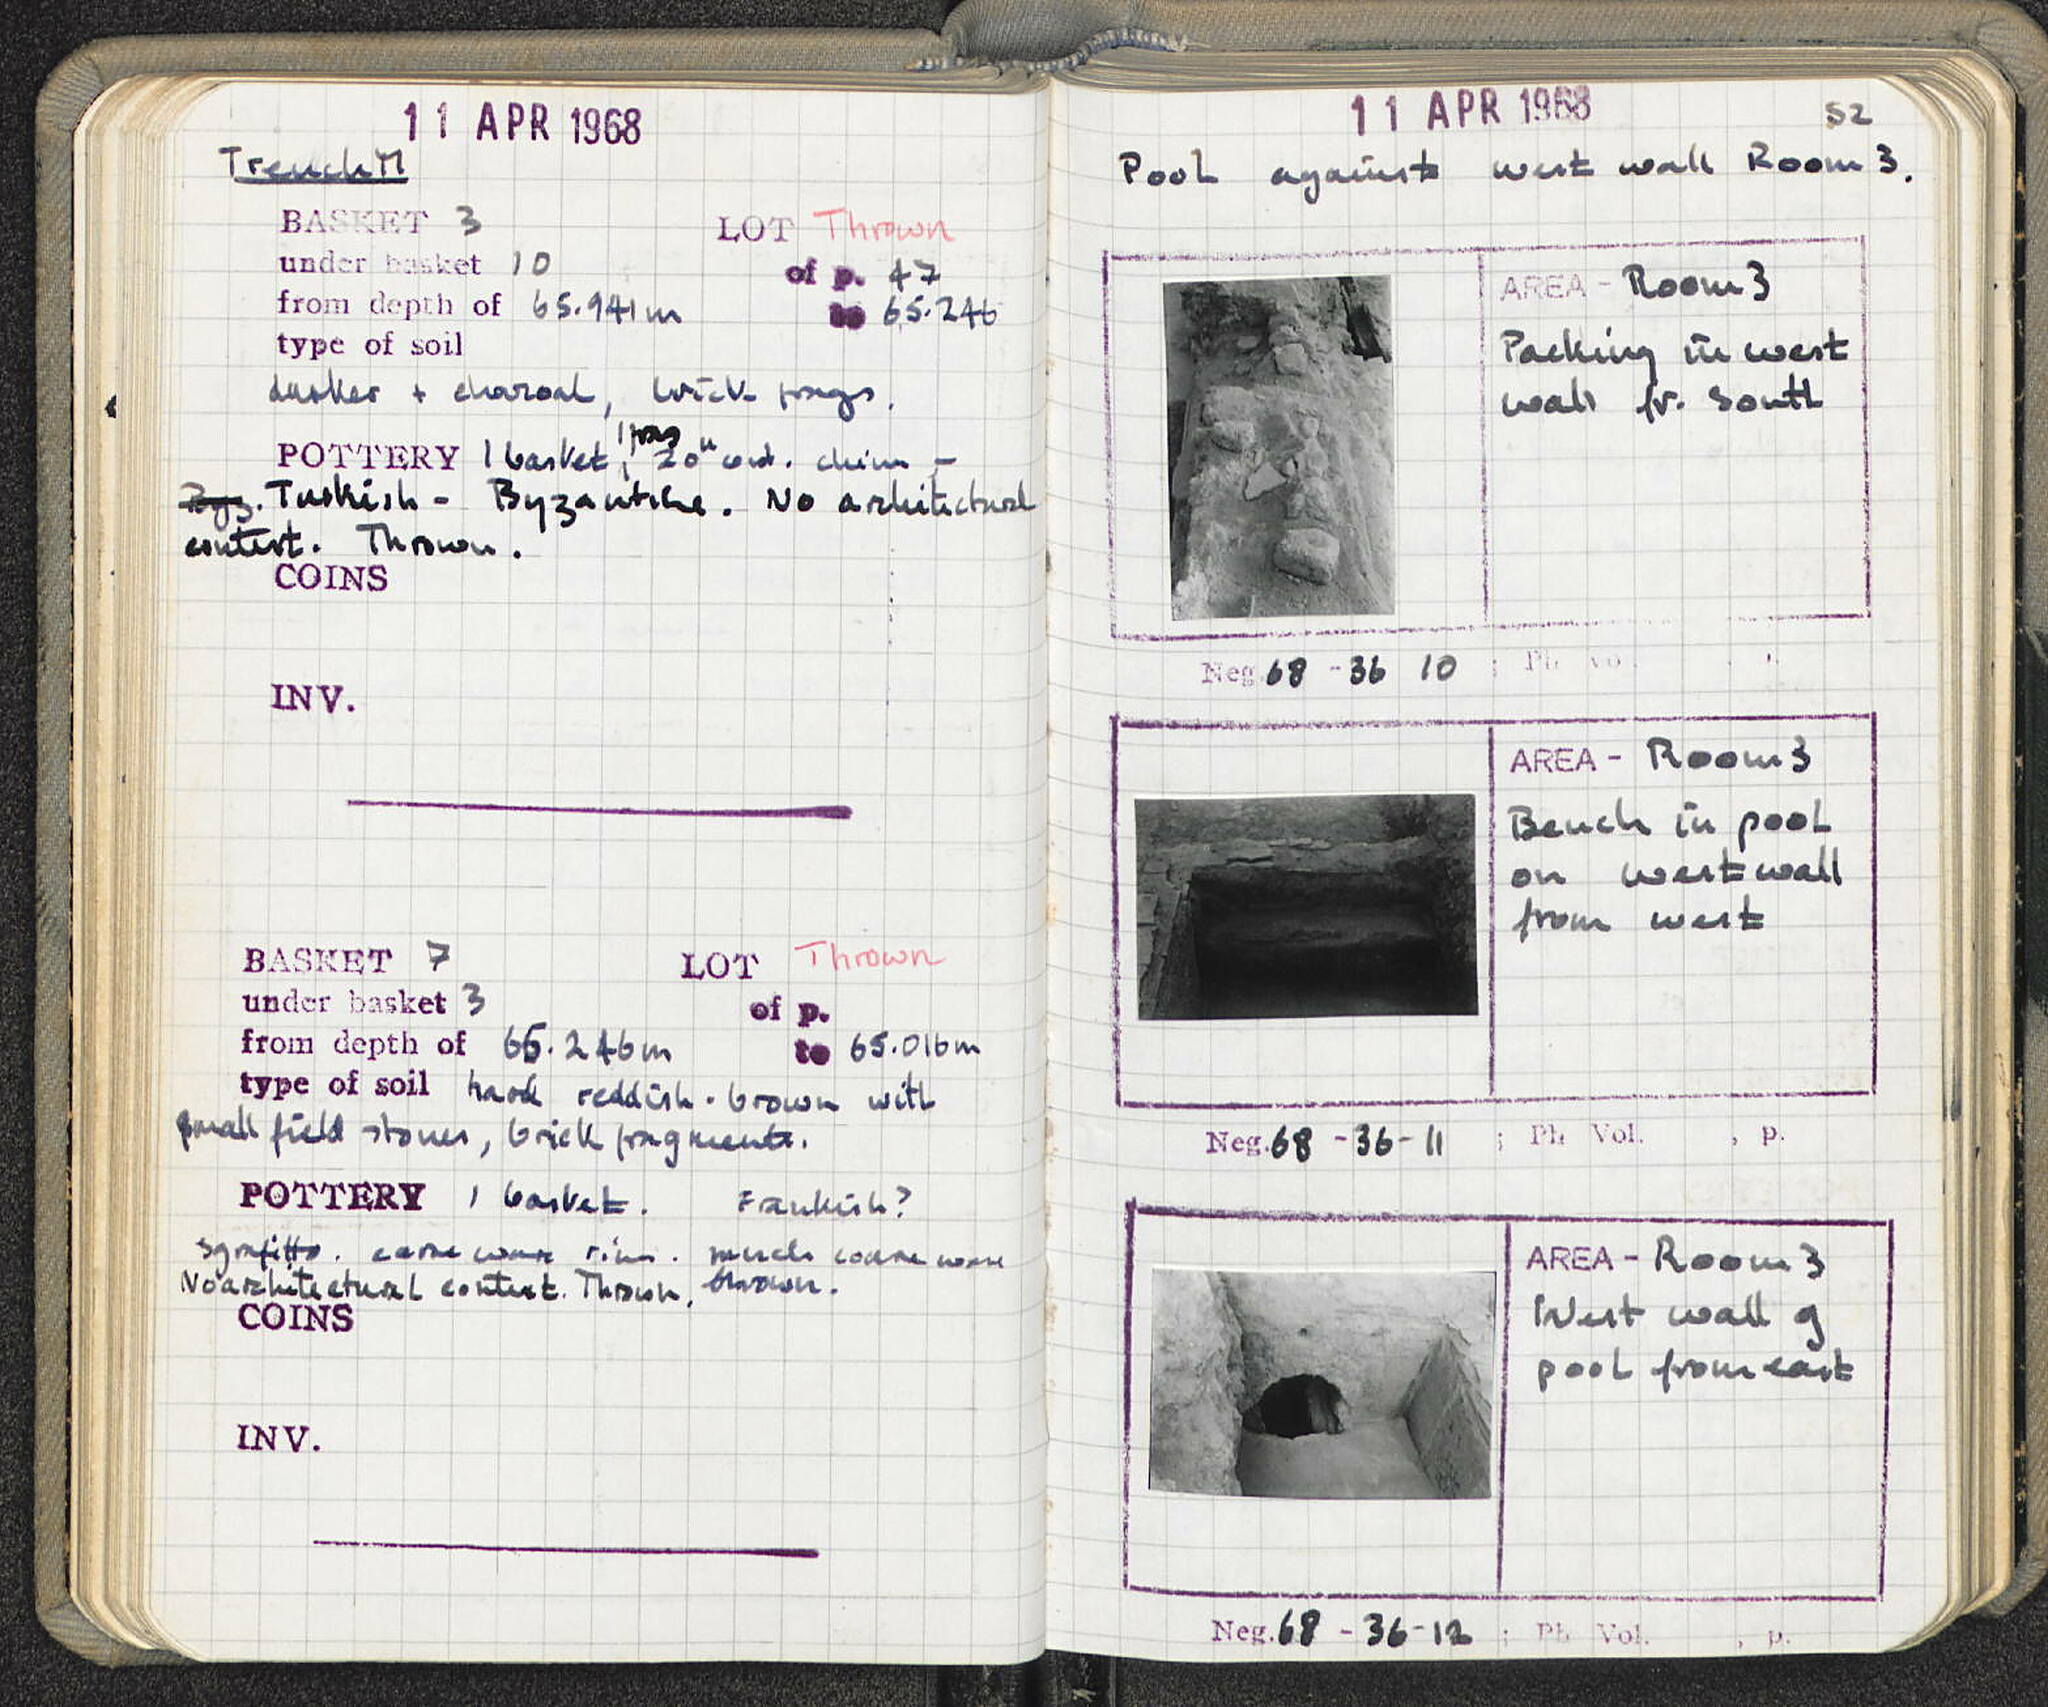 11 APR 1968
Trench M
BASKET 3 LOT Thrown
under basket 10 of p. 47
from depth of 65.941m to 65.246
type of soil
darker + charcoal, brick frags.
1 frag
POTTERY 1 basket, 20th cent. china -
Byz. Turkish - Byzantine. No architectural
context. Thrown.
COINS
INV.
BASKET 7 LOT Thrown
under basket 3 of p.
from depth of 65.246m to 65.016m
type of soil hard reddish-brown with
small field stones, brick fragments.
POTTERY 1 basket. Frankish?
sgrafitto. coarse ware rim. much coarse ware
No architectural context. Thrown. thrown.
COINS
INV.
11 APR 1968 52
Pool against west wall Room 3.
AREA - Room 3
Packing in west
wall fr. south
Neg. 68 - 36 10 ; Ph Vo
AREA - Room 3
Bench in pool
on west wall
from west
Neg. 68 - 36 - 11 ; Ph Vol. , p.
AREA - Room 3
West wall of
pool from east
Neg. 68 - 36 - 12 ; Ph Vol. , p.